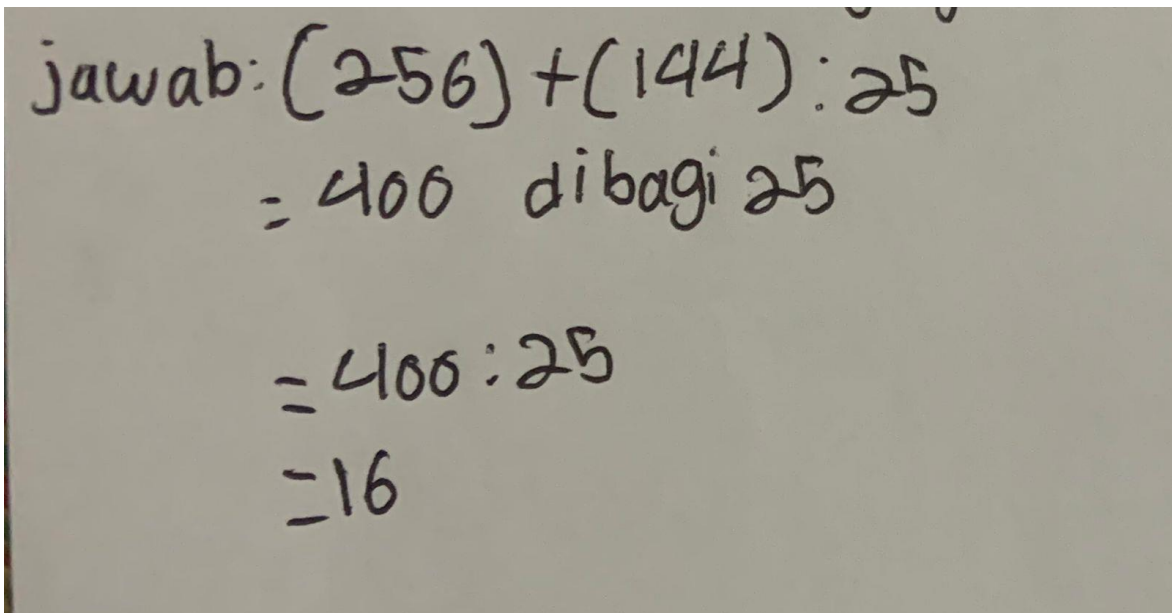 jawab: (256) + (144) : 25
= 400 dibagi 25
= 400 : 25
= 16